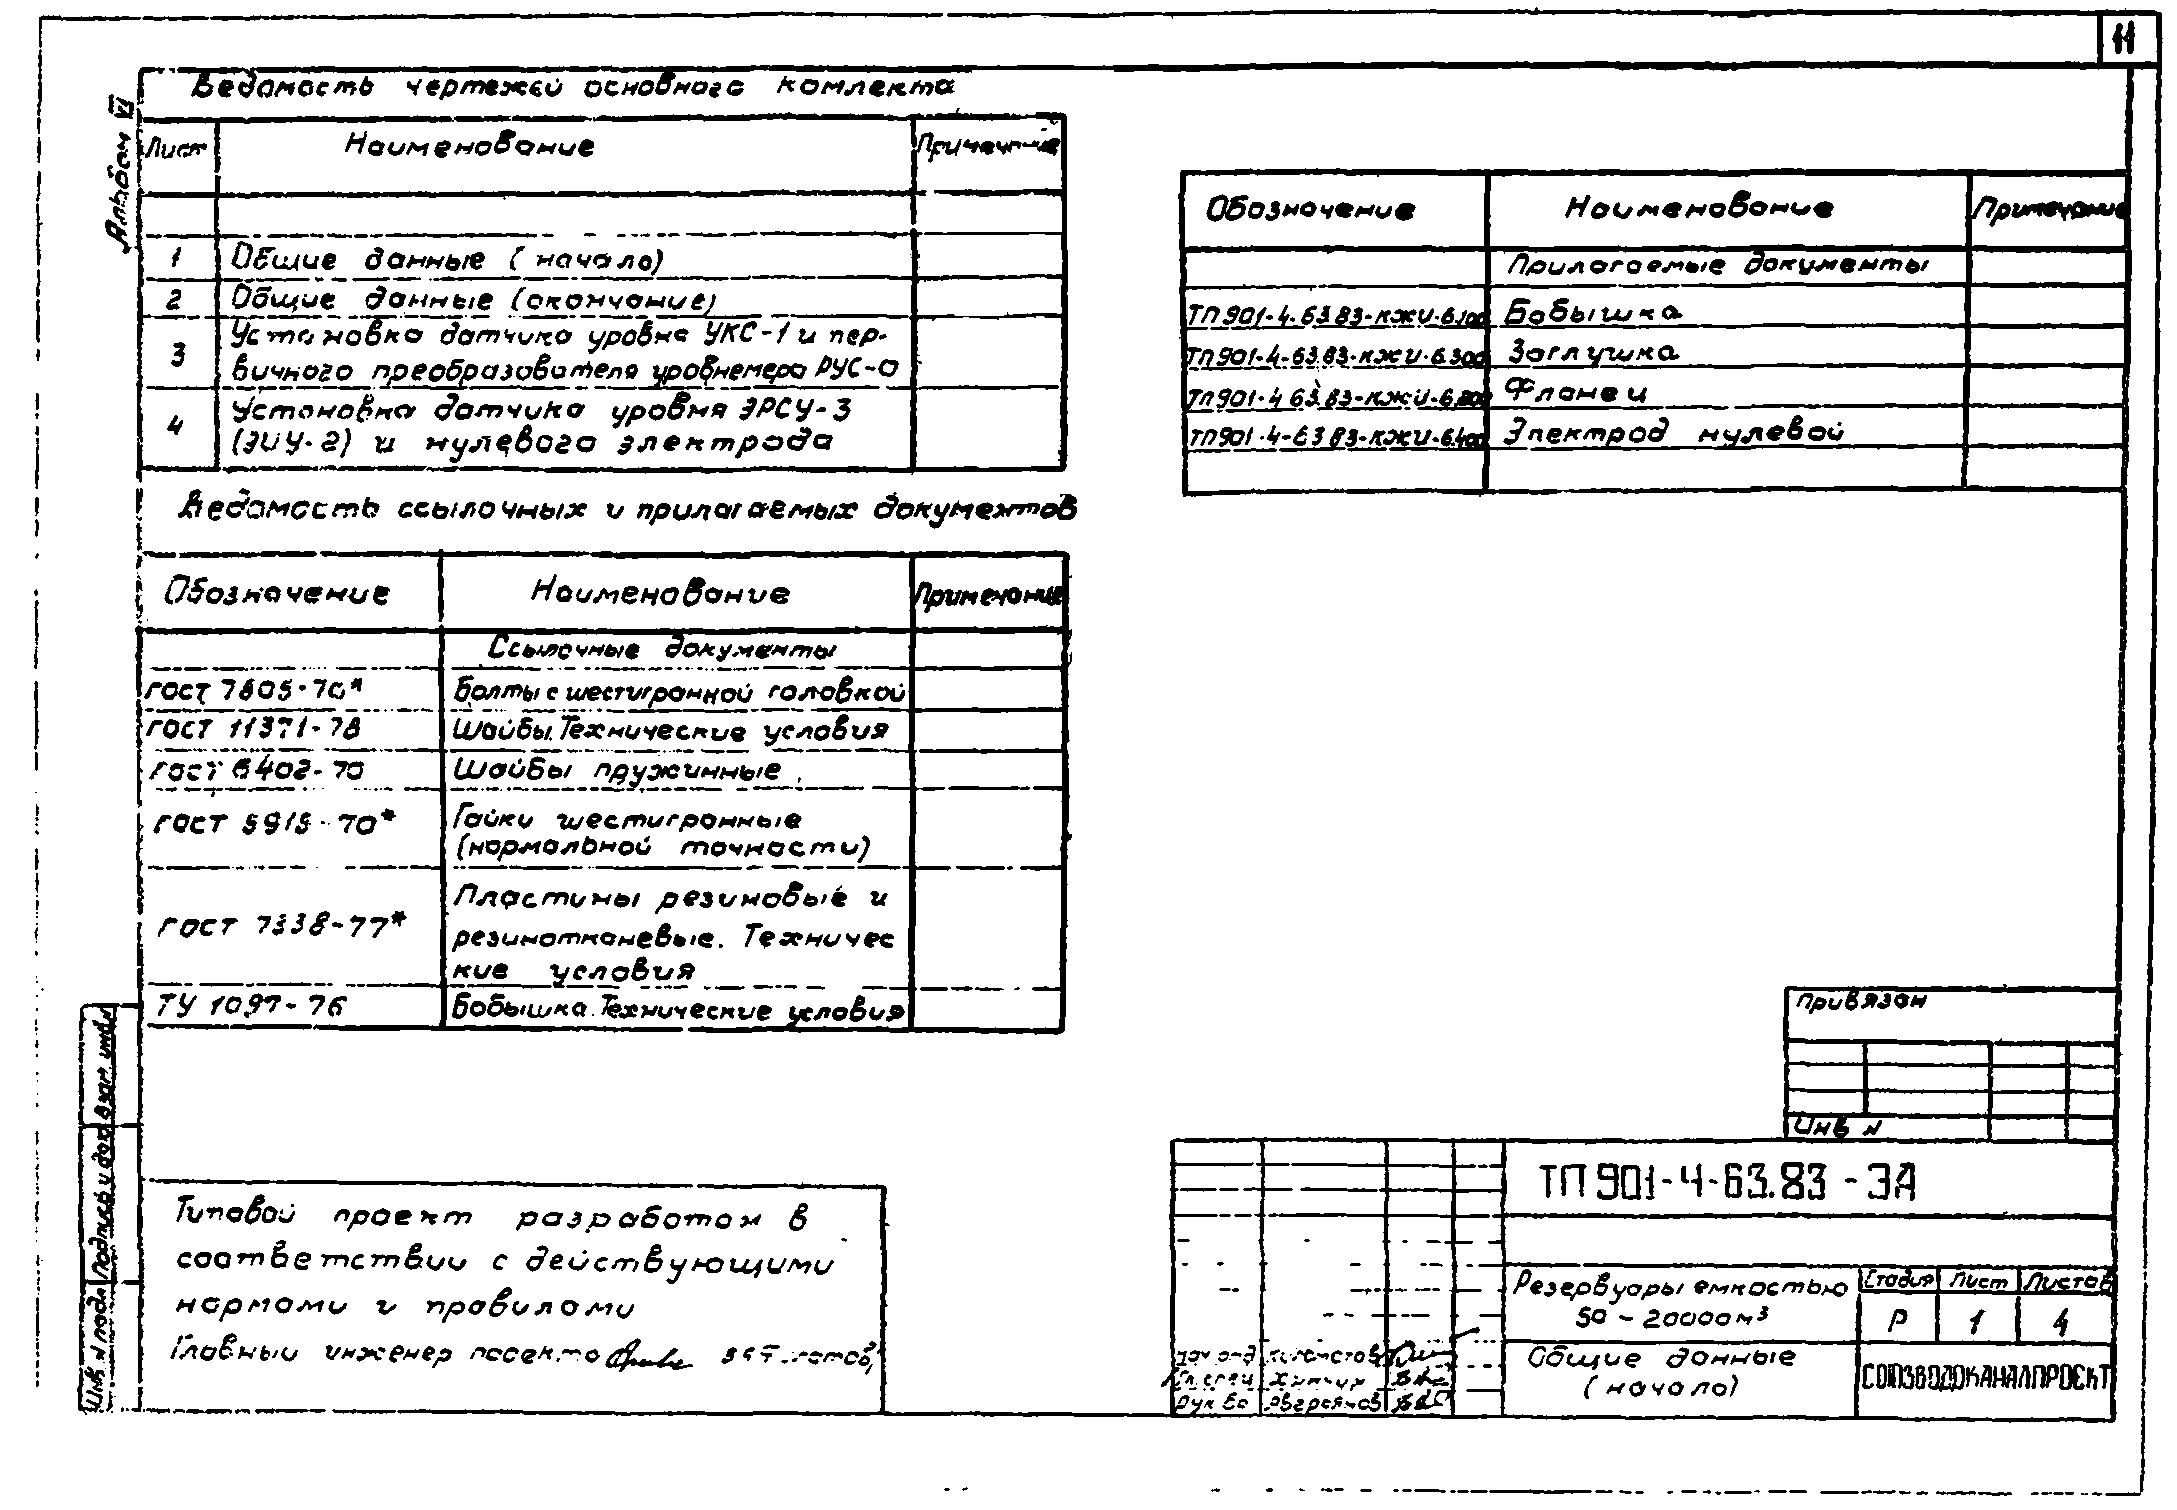 11
Альбом VI
Ведомость чертежей основного комлекта
Лист Наименование Примечание
1 Общие данные (начало)
2 Общие данные (окончание)
3 Установка датчика уровня УКС-1 и пер-
вичного преобразователя уровнемера РУС-0
4 Установка датчика уровня ЭРСУ-3
(ЭИУ-2) и нулевого электрода
Ведомость ссылочных и прилагаемых документов
Обозначение Наименование Примечание
Ссылочные документы
ГОСТ 7805-70* Болты с шестигранной головкой
ГОСТ 11371-78 Шайбы. Технические условия
ГОСТ 6402-70 Шайбы пружинные
ГОСТ 5915-70* Гайки шестигранные
(нормальной точности)
ГОСТ 7338-77* Пластины резиновые и
резинотканевые. Техничес
кие условия
ТУ 1097-76 Бобышка. Технические условия
Обозначение Наименование Примечание
Прилагаемые документы
ТП901-4-63.83-КЖИ-6.100 Бобышка
ТП901-4-63.83-КЖИ-6.300 Заглушка
ТП901-4-63.83-КЖИ-6.200 Фланец
ТП901-4-63.83-КЖИ-6.400 Электрод нулевой
Типовой проект разработан в
соответствии с действующими
нормами и правилами
Главный инженер проекта
Инв. N подл Подпись и дата Взам. инв.
Привязан
Инв N
ТП 901-4-63.83 - ЭА
Резервуары емкостью
50 - 20000 м³
Стадия Лист Листов
Р 1 4
Общие данные
(начало)
СОЮЗВОДОКАНАЛПРОЕКТ
Нач отд
Гл. спец
Рук бр